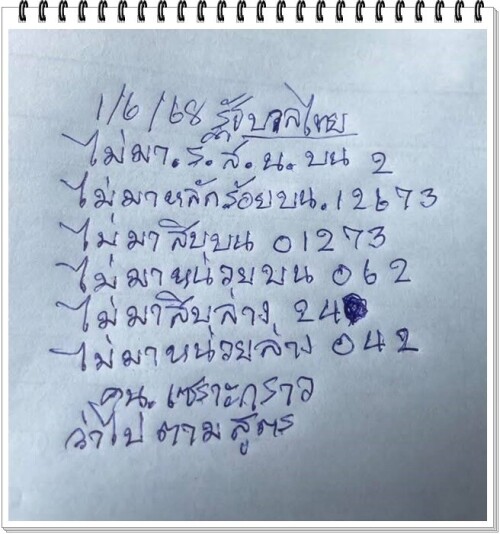 1/6/68 รัฐบาลไทย
ไม่มา.ร.ส.น.บน 2
ไม่มาหลักร้อยบน.12673
ไม่มาสิบบน 01273
ไม่มาหน่วยบน 062
ไม่มาสิบล่าง 24
ไม่มาหน่วยล่าง 042
คน.เซราะกราว
ว่าไปตามสูตร